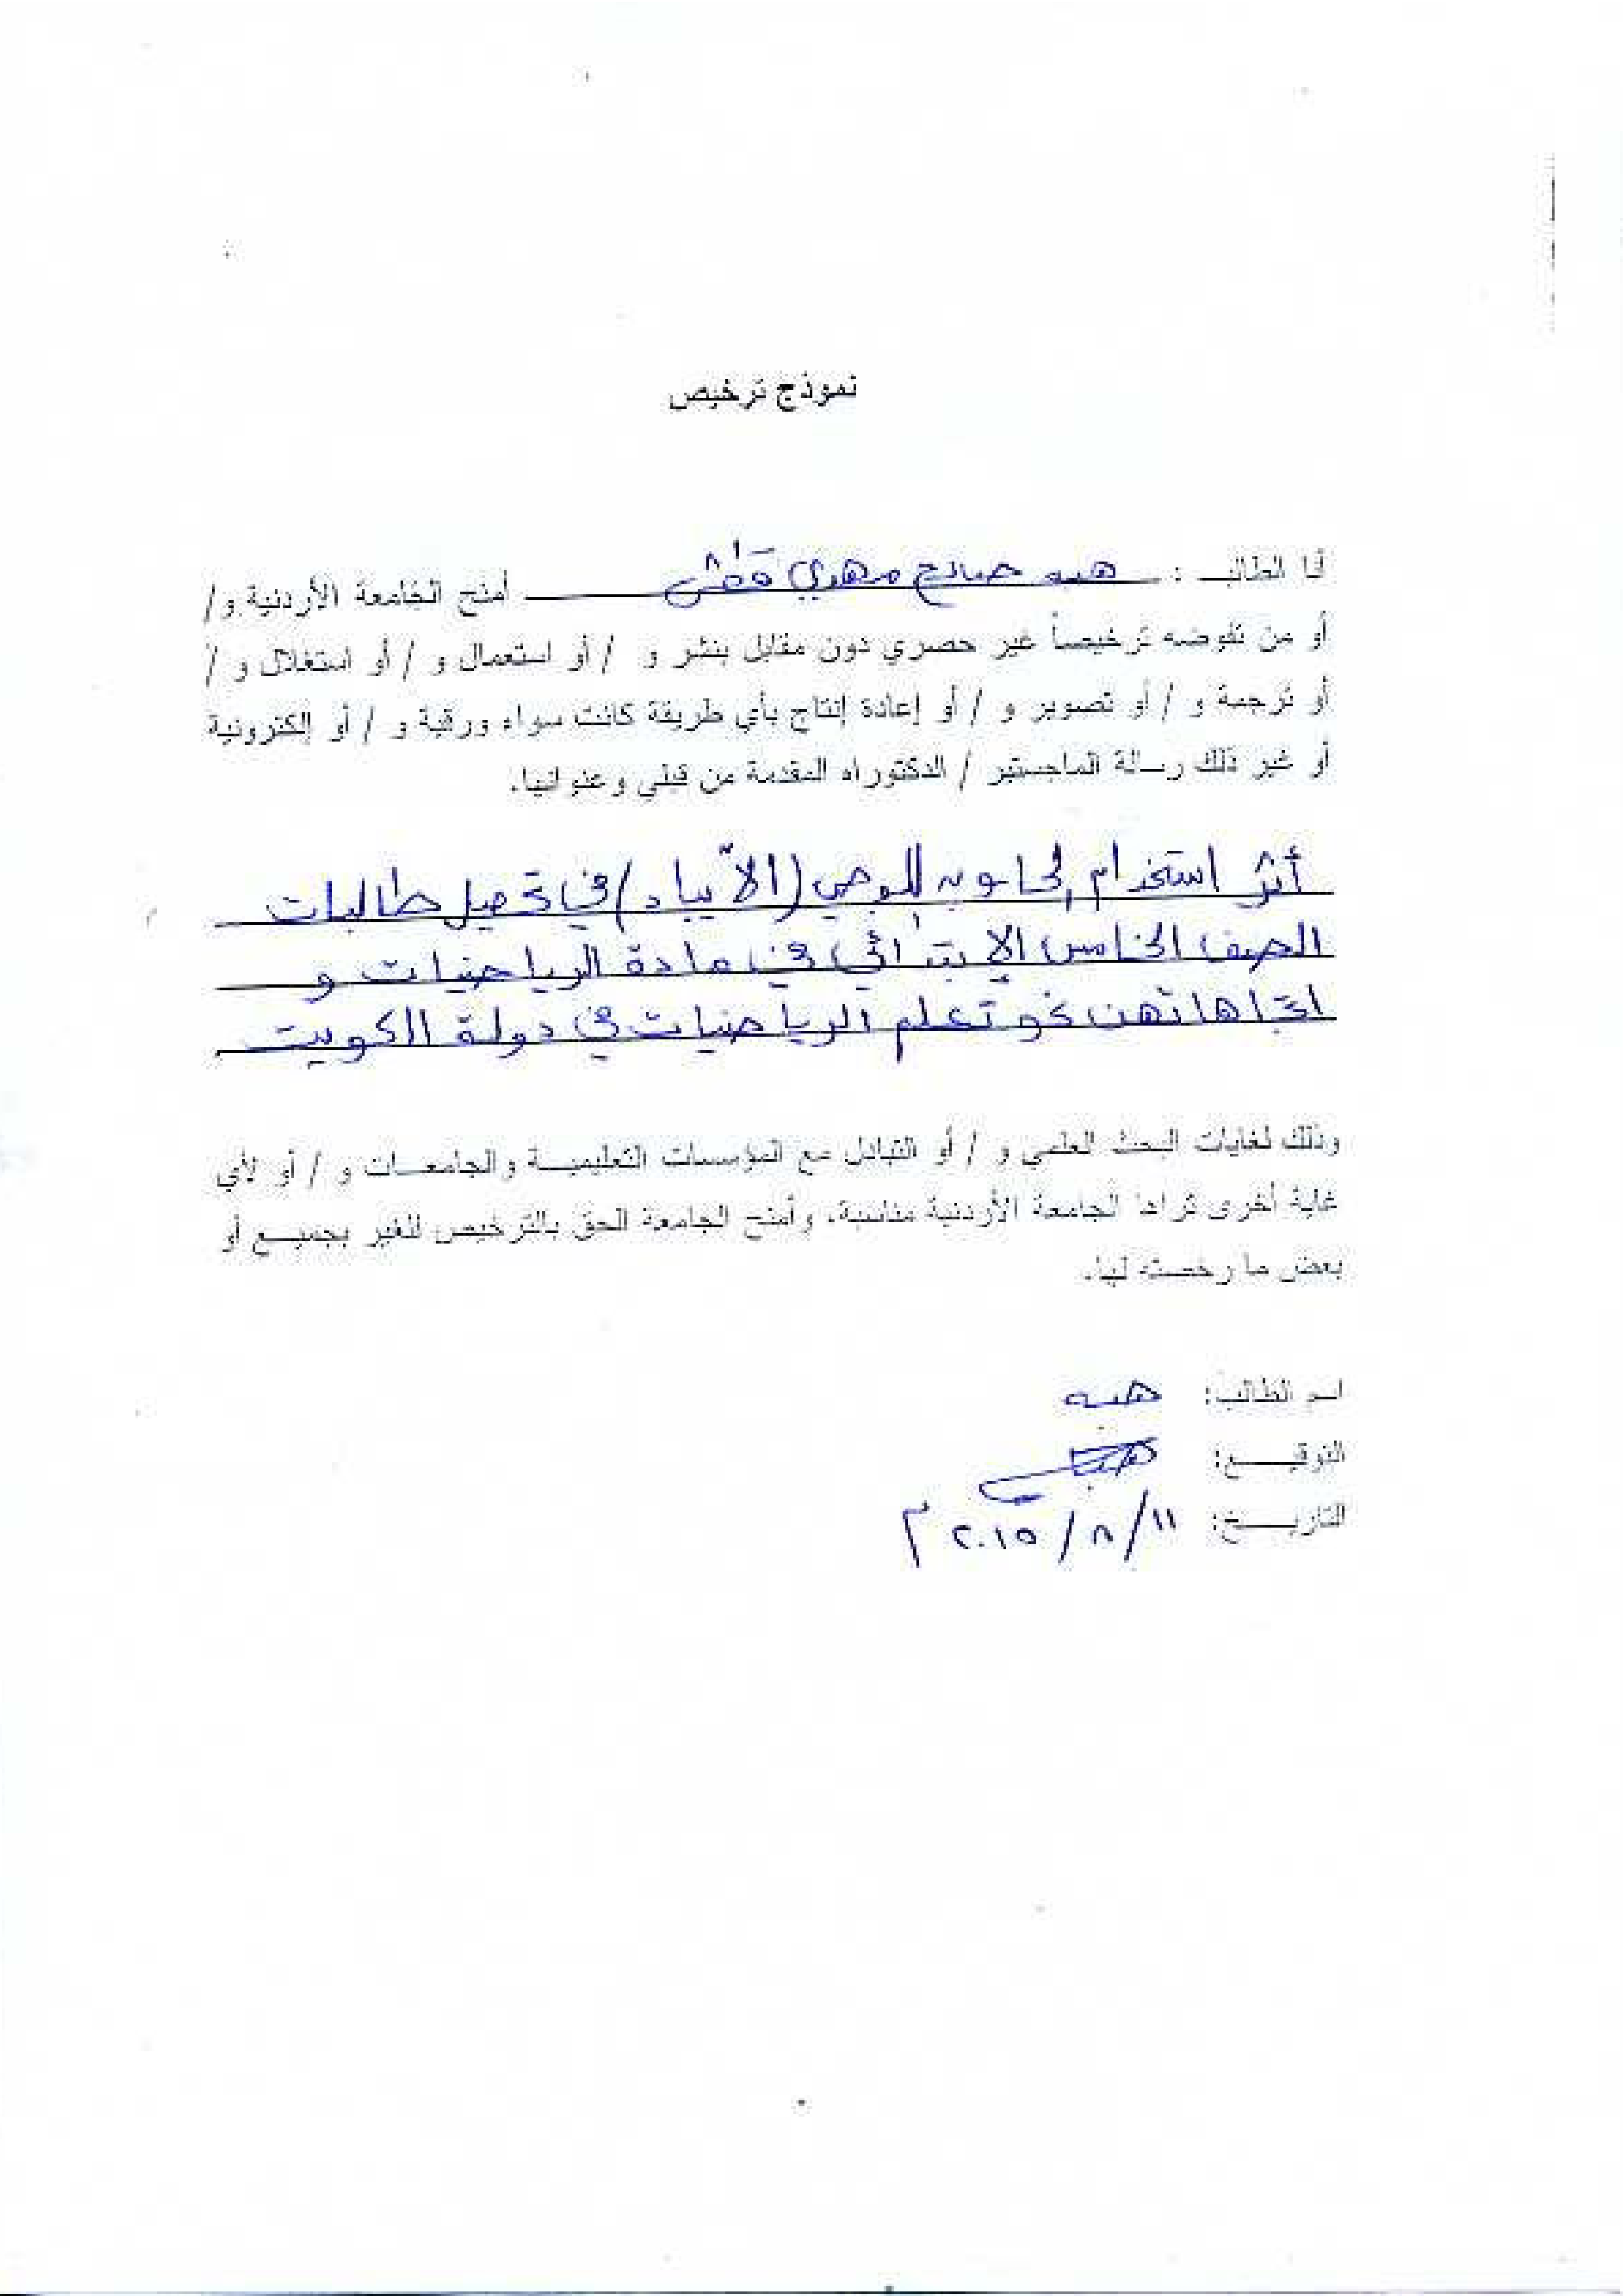 نموذج ترخيص
أنا الطالب : هبه صالح مهدي أمنح الجامعة الأردنية و/
أو من تفوضه ترخيصاً غير حصري دون مقابل بنشر و / أو استعمال و / أو استغلال و /
أو ترجمة و / أو تصوير و / أو إعادة إنتاج بأي طريقة كانت سواء ورقية و / أو إلكترونية
أو غير ذلك رسالة الماجستير / الدكتوراه المقدمة من قبلي وعنوانها.
أثر استخدام الحاسوب اللوحي (الآيباد) في تحصيل طالبات
الصف الخامس الابتدائي في مادة الرياضيات و
اتجاهاتهن نحو تعلم الرياضيات في دولة الكويت
وذلك لغايات البحث العلمي و / أو التبادل مع المؤسسات التعليمية والجامعات و / أو لأي
غاية أخرى تراها الجامعة الأردنية مناسبة، وأمنح الجامعة الحق بالترخيص للغير بجميع أو
بعض ما رخصته لها.
اسم الطالب: هبه
التوقيع: هبه
التاريخ: ١١/ ٨ / ٢٠١٥ م